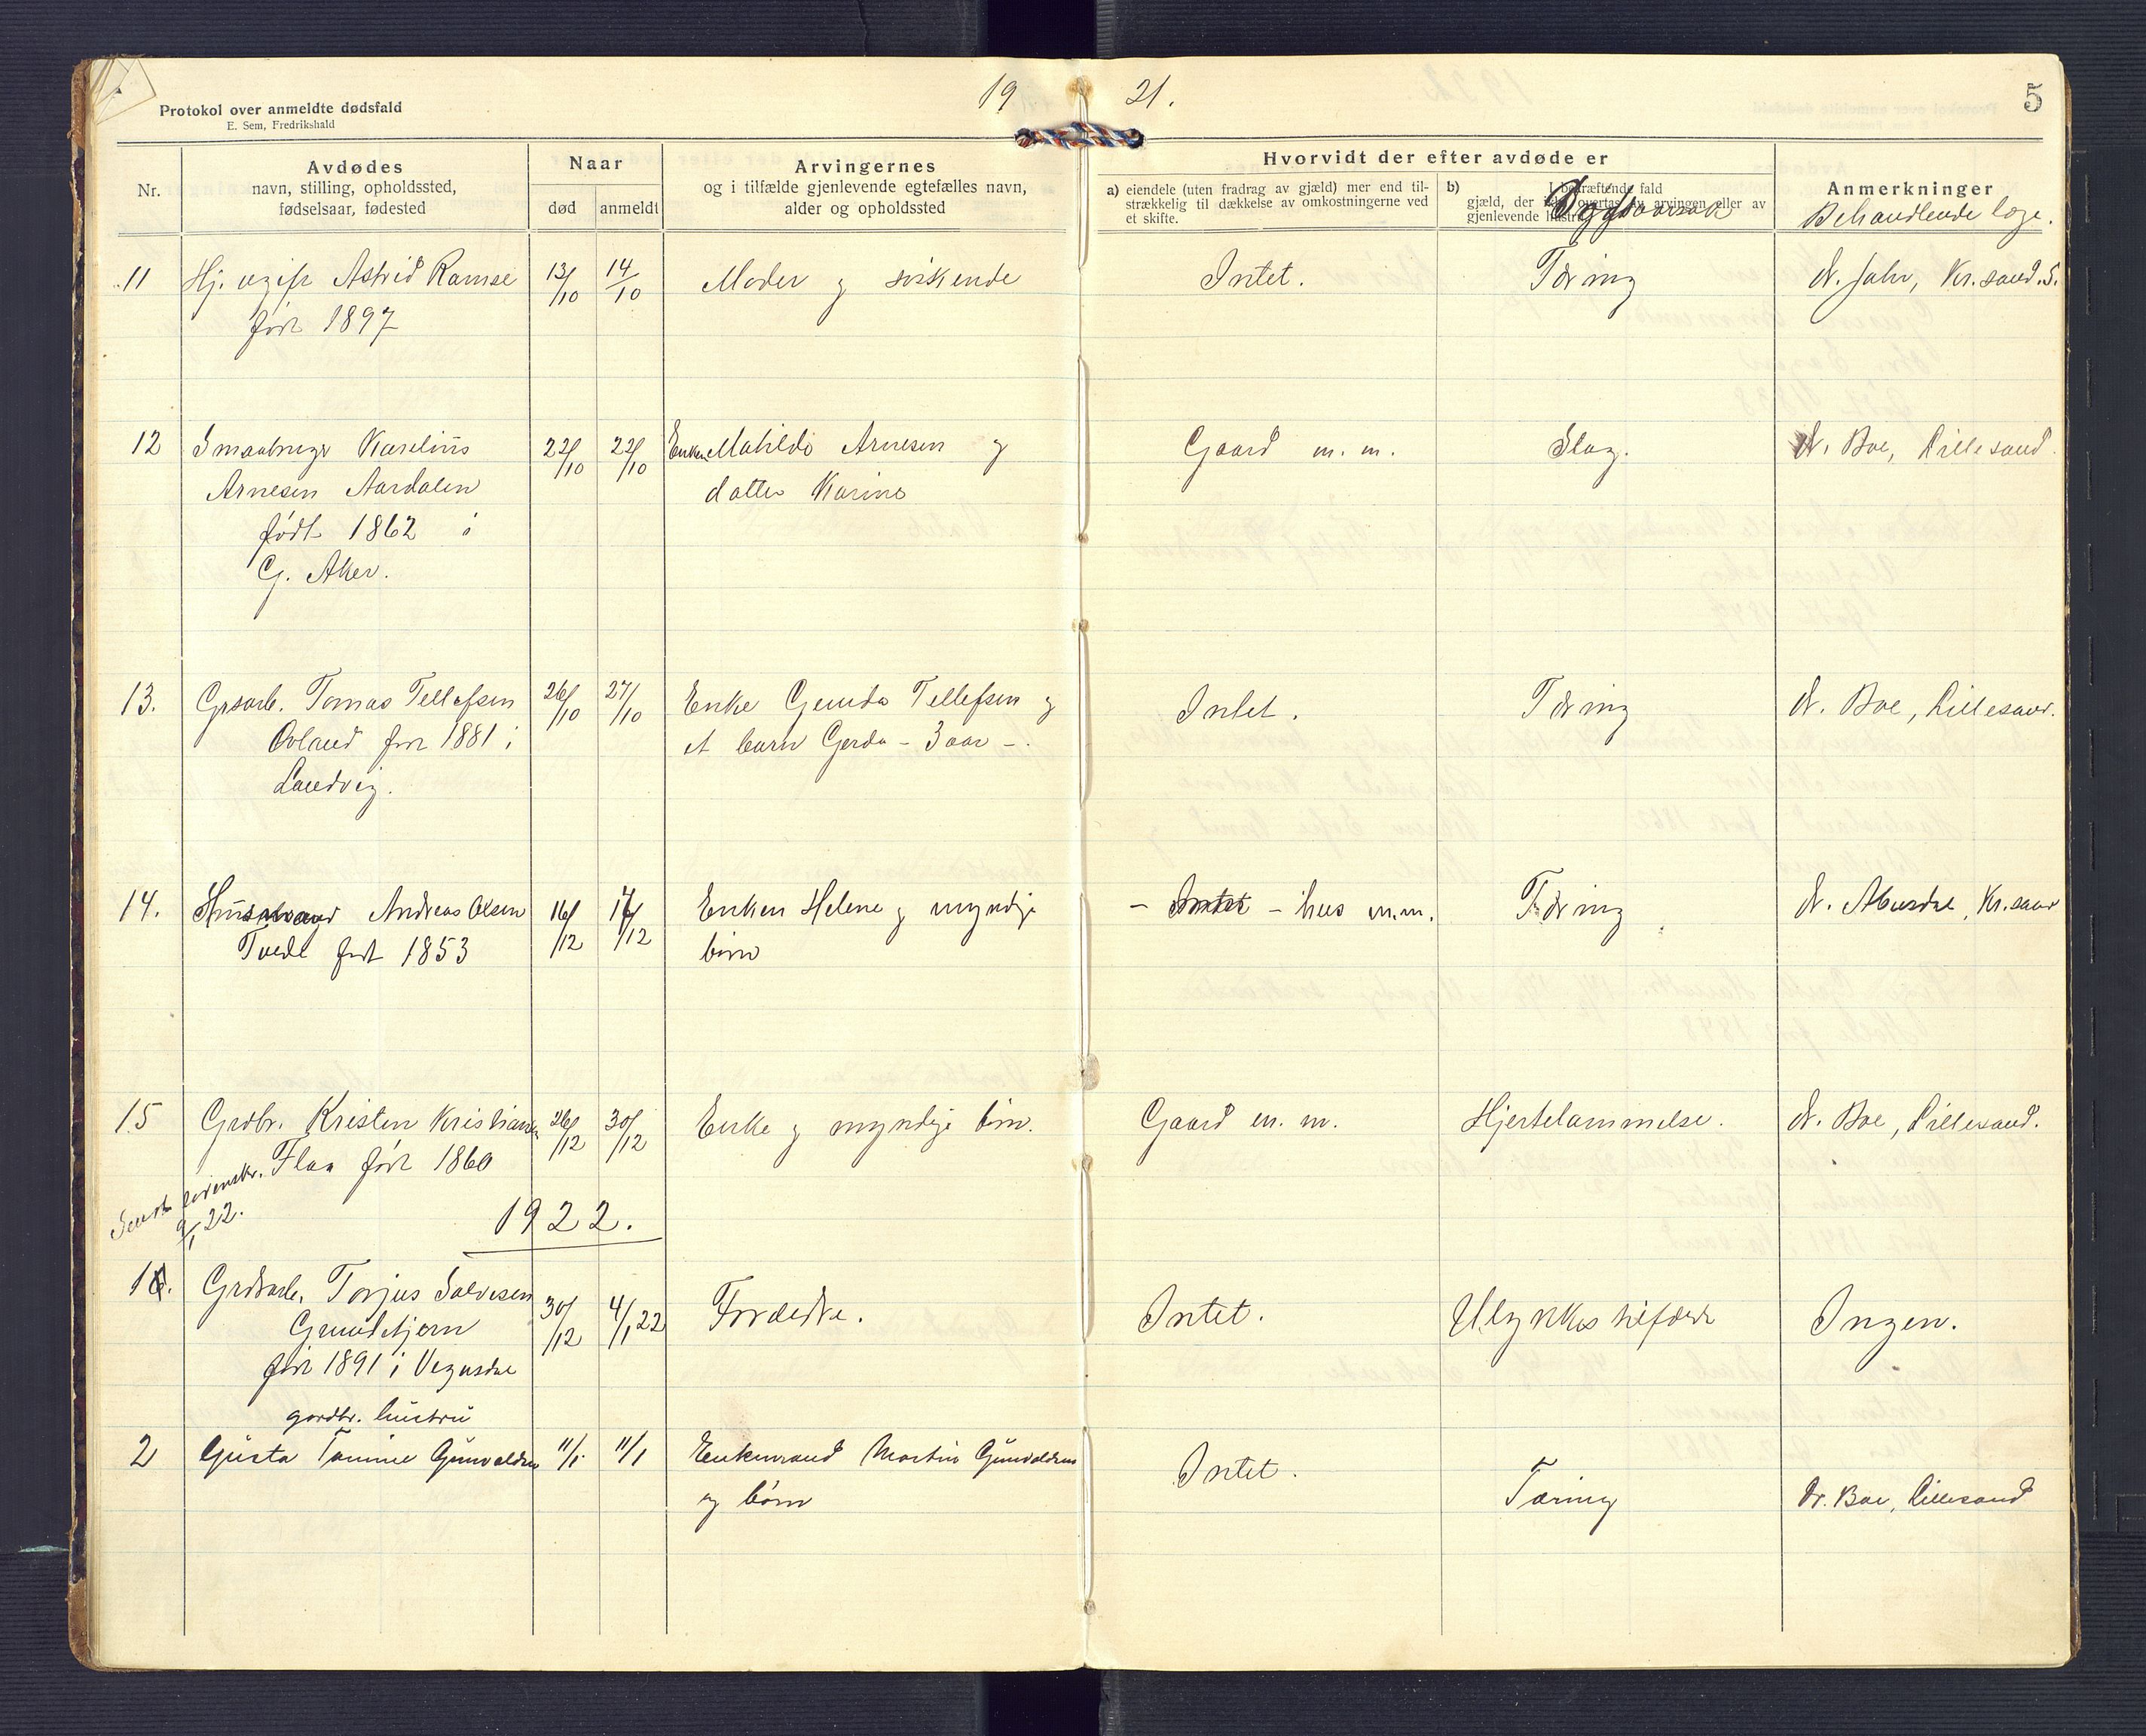 Protokol over anmeldte dødsfald
E. Sem, Fredrikshald
19 21.
5
Nr.
Avdødes
navn, stilling, opholdssted,
fødselsaar, fødested
Naar
død
anmeldt
Arvingernes
og i tilfælde gjenlevende egtefælles navn,
alder og opholdssted
Hvorvidt der efter avdøde er
a) eiendele (uten fradrag av gjæld) mer end til-
strækkelig til dækkelse av omkostningerne ved
et skifte.
b) I bekræftende fald
gjæld, der overtas av arvingen eller av
gjenlevende
Anmerkninger
Behandlende læge.
11 Hj. ugift Astrid Ramse 13/10 14/10 Moder og søskende Intet. Tæring Dr. Jahr, Kr.sand.S.
født 1897
12 Smaabruger Karelius 22/10 22/10 Enken Mathilde Arnesen og Gaard m. m. Slag. Dr. Boe, Lillesand.
Arnesen Aardalen datter Karine
født 1862 i
G. Aker.
13. Grsarb. Tomas Tellefsen 26/10 27/10 Enke Gunda Tellefsen og Intet. Tæring Dr. Boe, Lillesand.
Øvland født 1881 i et barn Gerda - 3 aar -.
Landvig.
14. Andreas Olsen 16/12 17/12 Enken Helene og myndige - Intet - hus m.m. Tæring Dr. Kr.sand
Tvede født 1853 børn
15 Grdbr. Kristen Kristiansen 26/12 30/12 Enke og myndige børn. Gaard m. m. Hjertelammelse. Dr. Boe, Lillesand.
Flaa født 1860
Sendt sorenskr.
9/1 22.
1922.
1. Grdsarb. Torjus Salvesen 30/12 4/1 22 Forældre. Intet. Ulykkestilfælde Ingen.
Grundetjern
født 1891 i Vegusdal
2 gardbr. hustru
Gusta Tomine Gunvaldsen 11/1 11/1 Enkemand Martin Gunvaldsen Intet. Tæring Dr. Boe, Lillesand
og børn